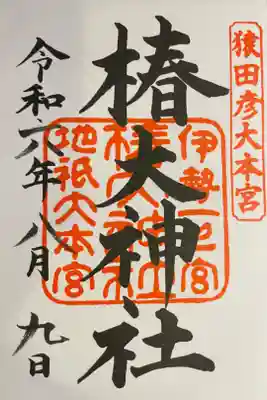 猿田彦大本宮
椿大神社
伊勢一宮
椿大神社
地祇大本宮
令和六年八月九日